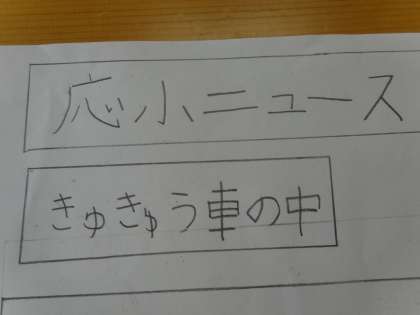 応小ニュース
きゅきゅう車の中